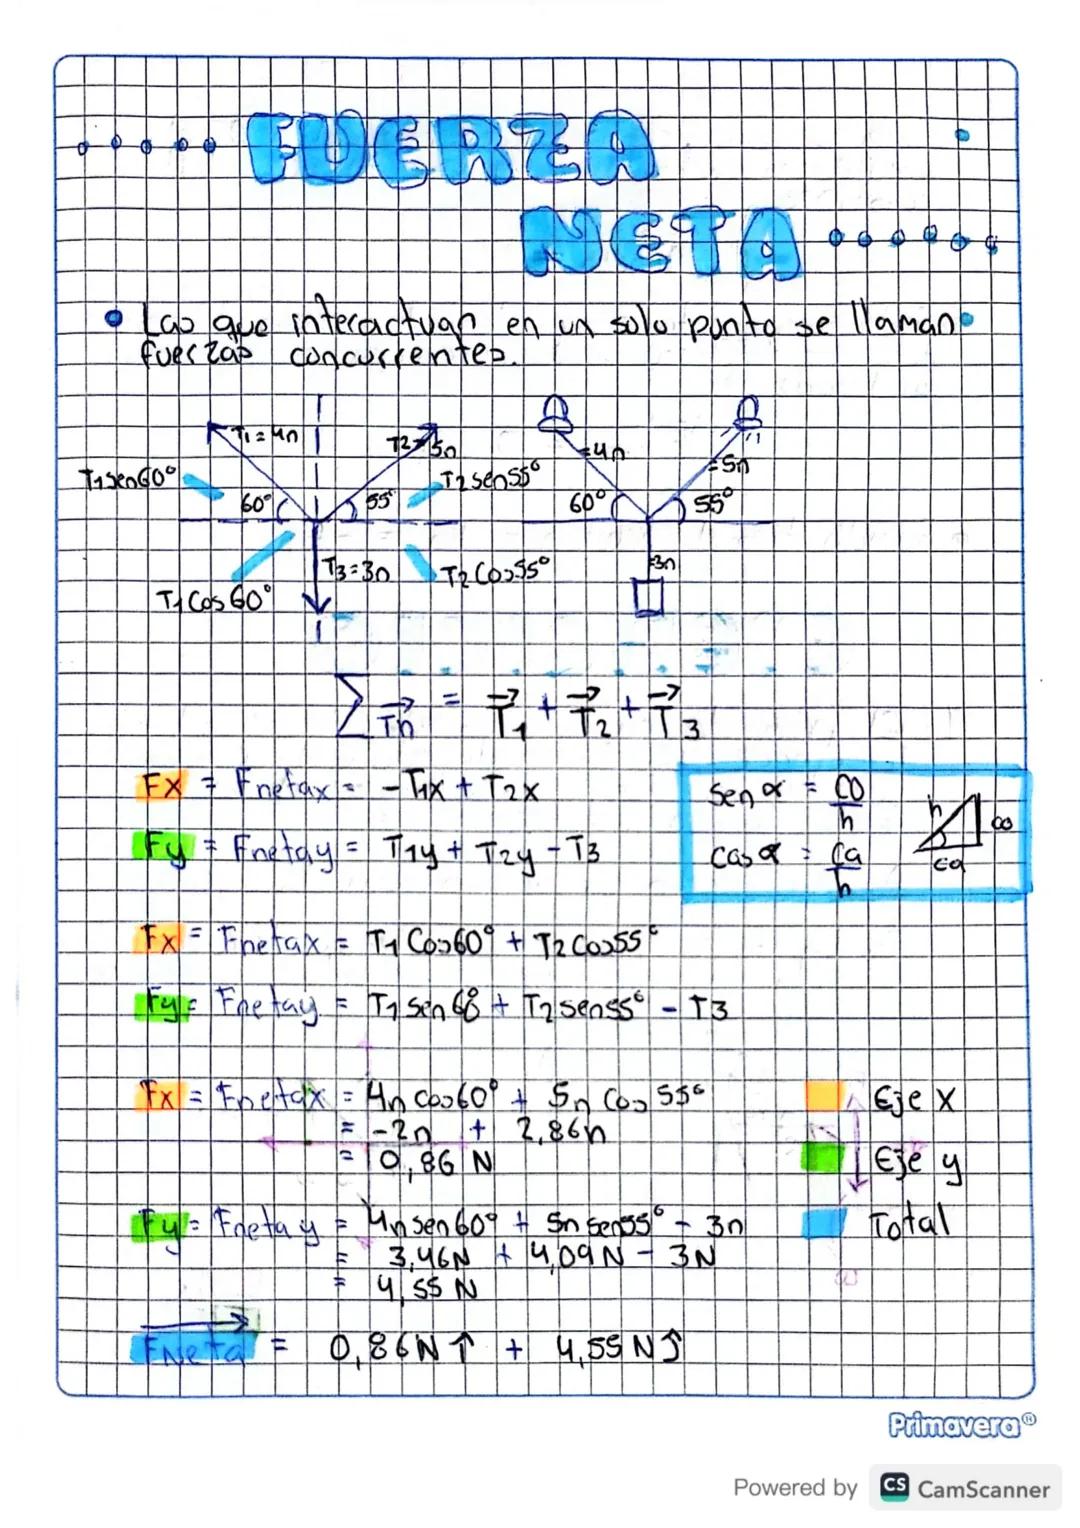 FUERZA
NETA
Las que interactuan en un solo punto se llaman
fuerzas concurrentes.
T1=4n
T2=5n
=4n
=5n
T1sen60°
T2sen55°
60°
55°
60°
55°
T3=3n
T2Cos55°
3n
T1Cos60°
∑Tn = T1 + T2 + T3
Fx = Fnetax = -T1x + T2x
Fy = Fnetay = T1y + T2y - T3
sen α = CO/h
cos α = Ca/h
h
co
ca
Fx = Fnetax = T1 Cos60° + T2 Cos55°
Fy = Fnetay = T1 sen 60 + T2 sen55° - T3
Fx = Fnetax = 4n cos60° + 5n Cos 55°
= -2n + 2,86n
= 0,86 N
Eje x
Eje y
Total
Fy = Fneta y = 4n sen60° + 5n sen55° - 3n
= 3,46N + 4,09N - 3N
= 4,55 N
FNeta = 0,86N ↑ + 4,55 N J
Primavera®
Powered by CS CamScanner